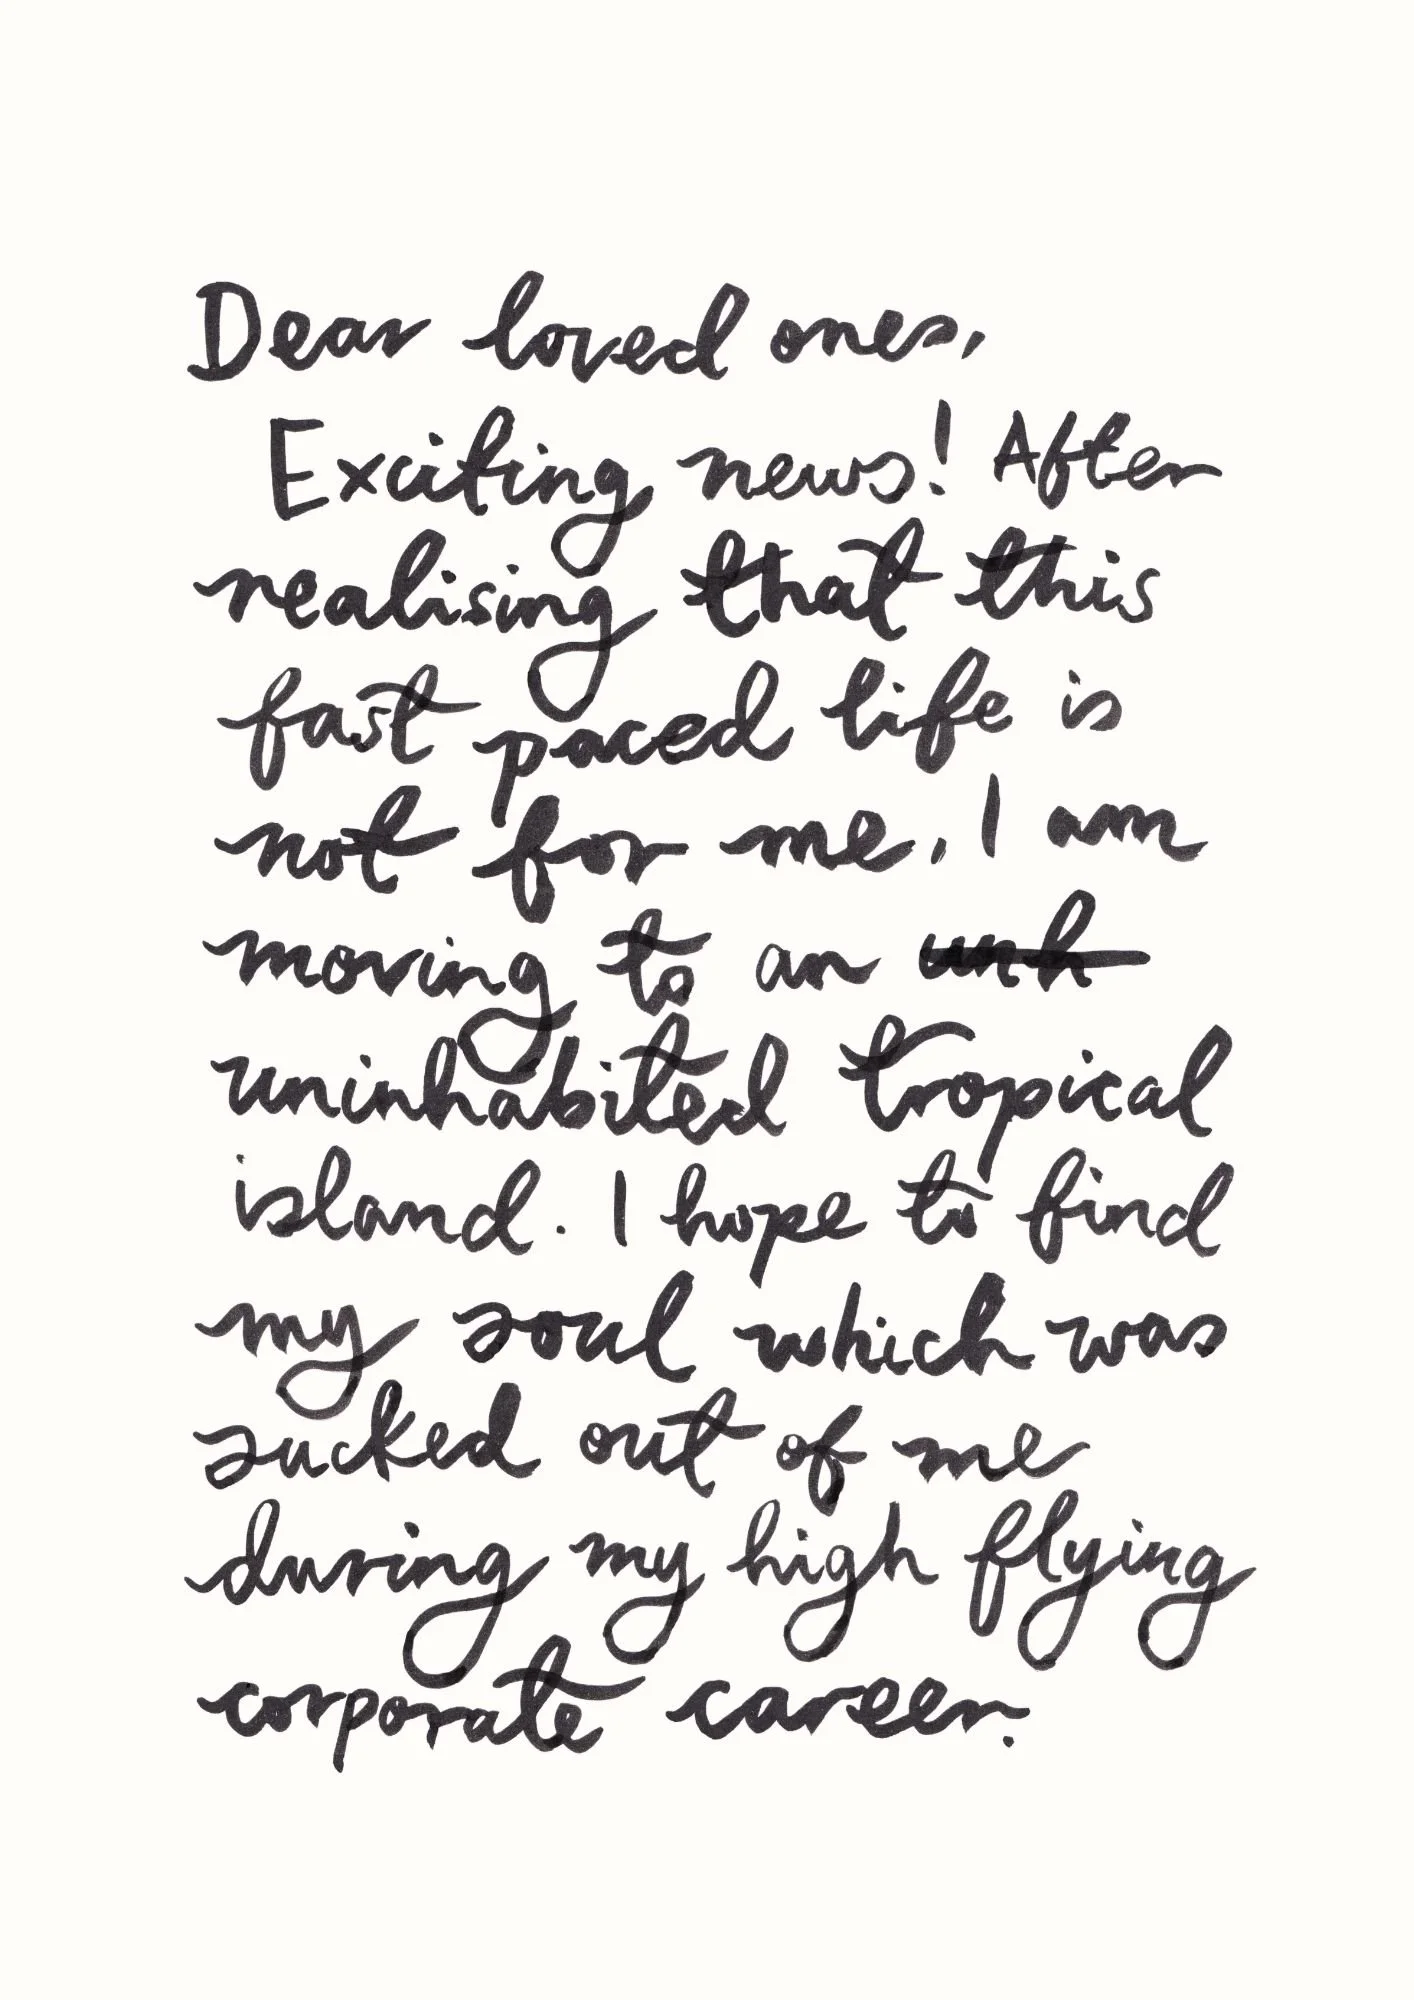 Dear loved ones,
Exciting news! After
realising that this
fast paced life is
not for me, I am
moving to an unh
uninhabited tropical
island. I hope to find
my soul which was
sucked out of me
during my high flying
corporate career.